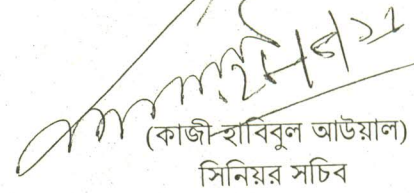 (কাজী হাবিবুল আউয়াল)
সিনিয়র সচিব